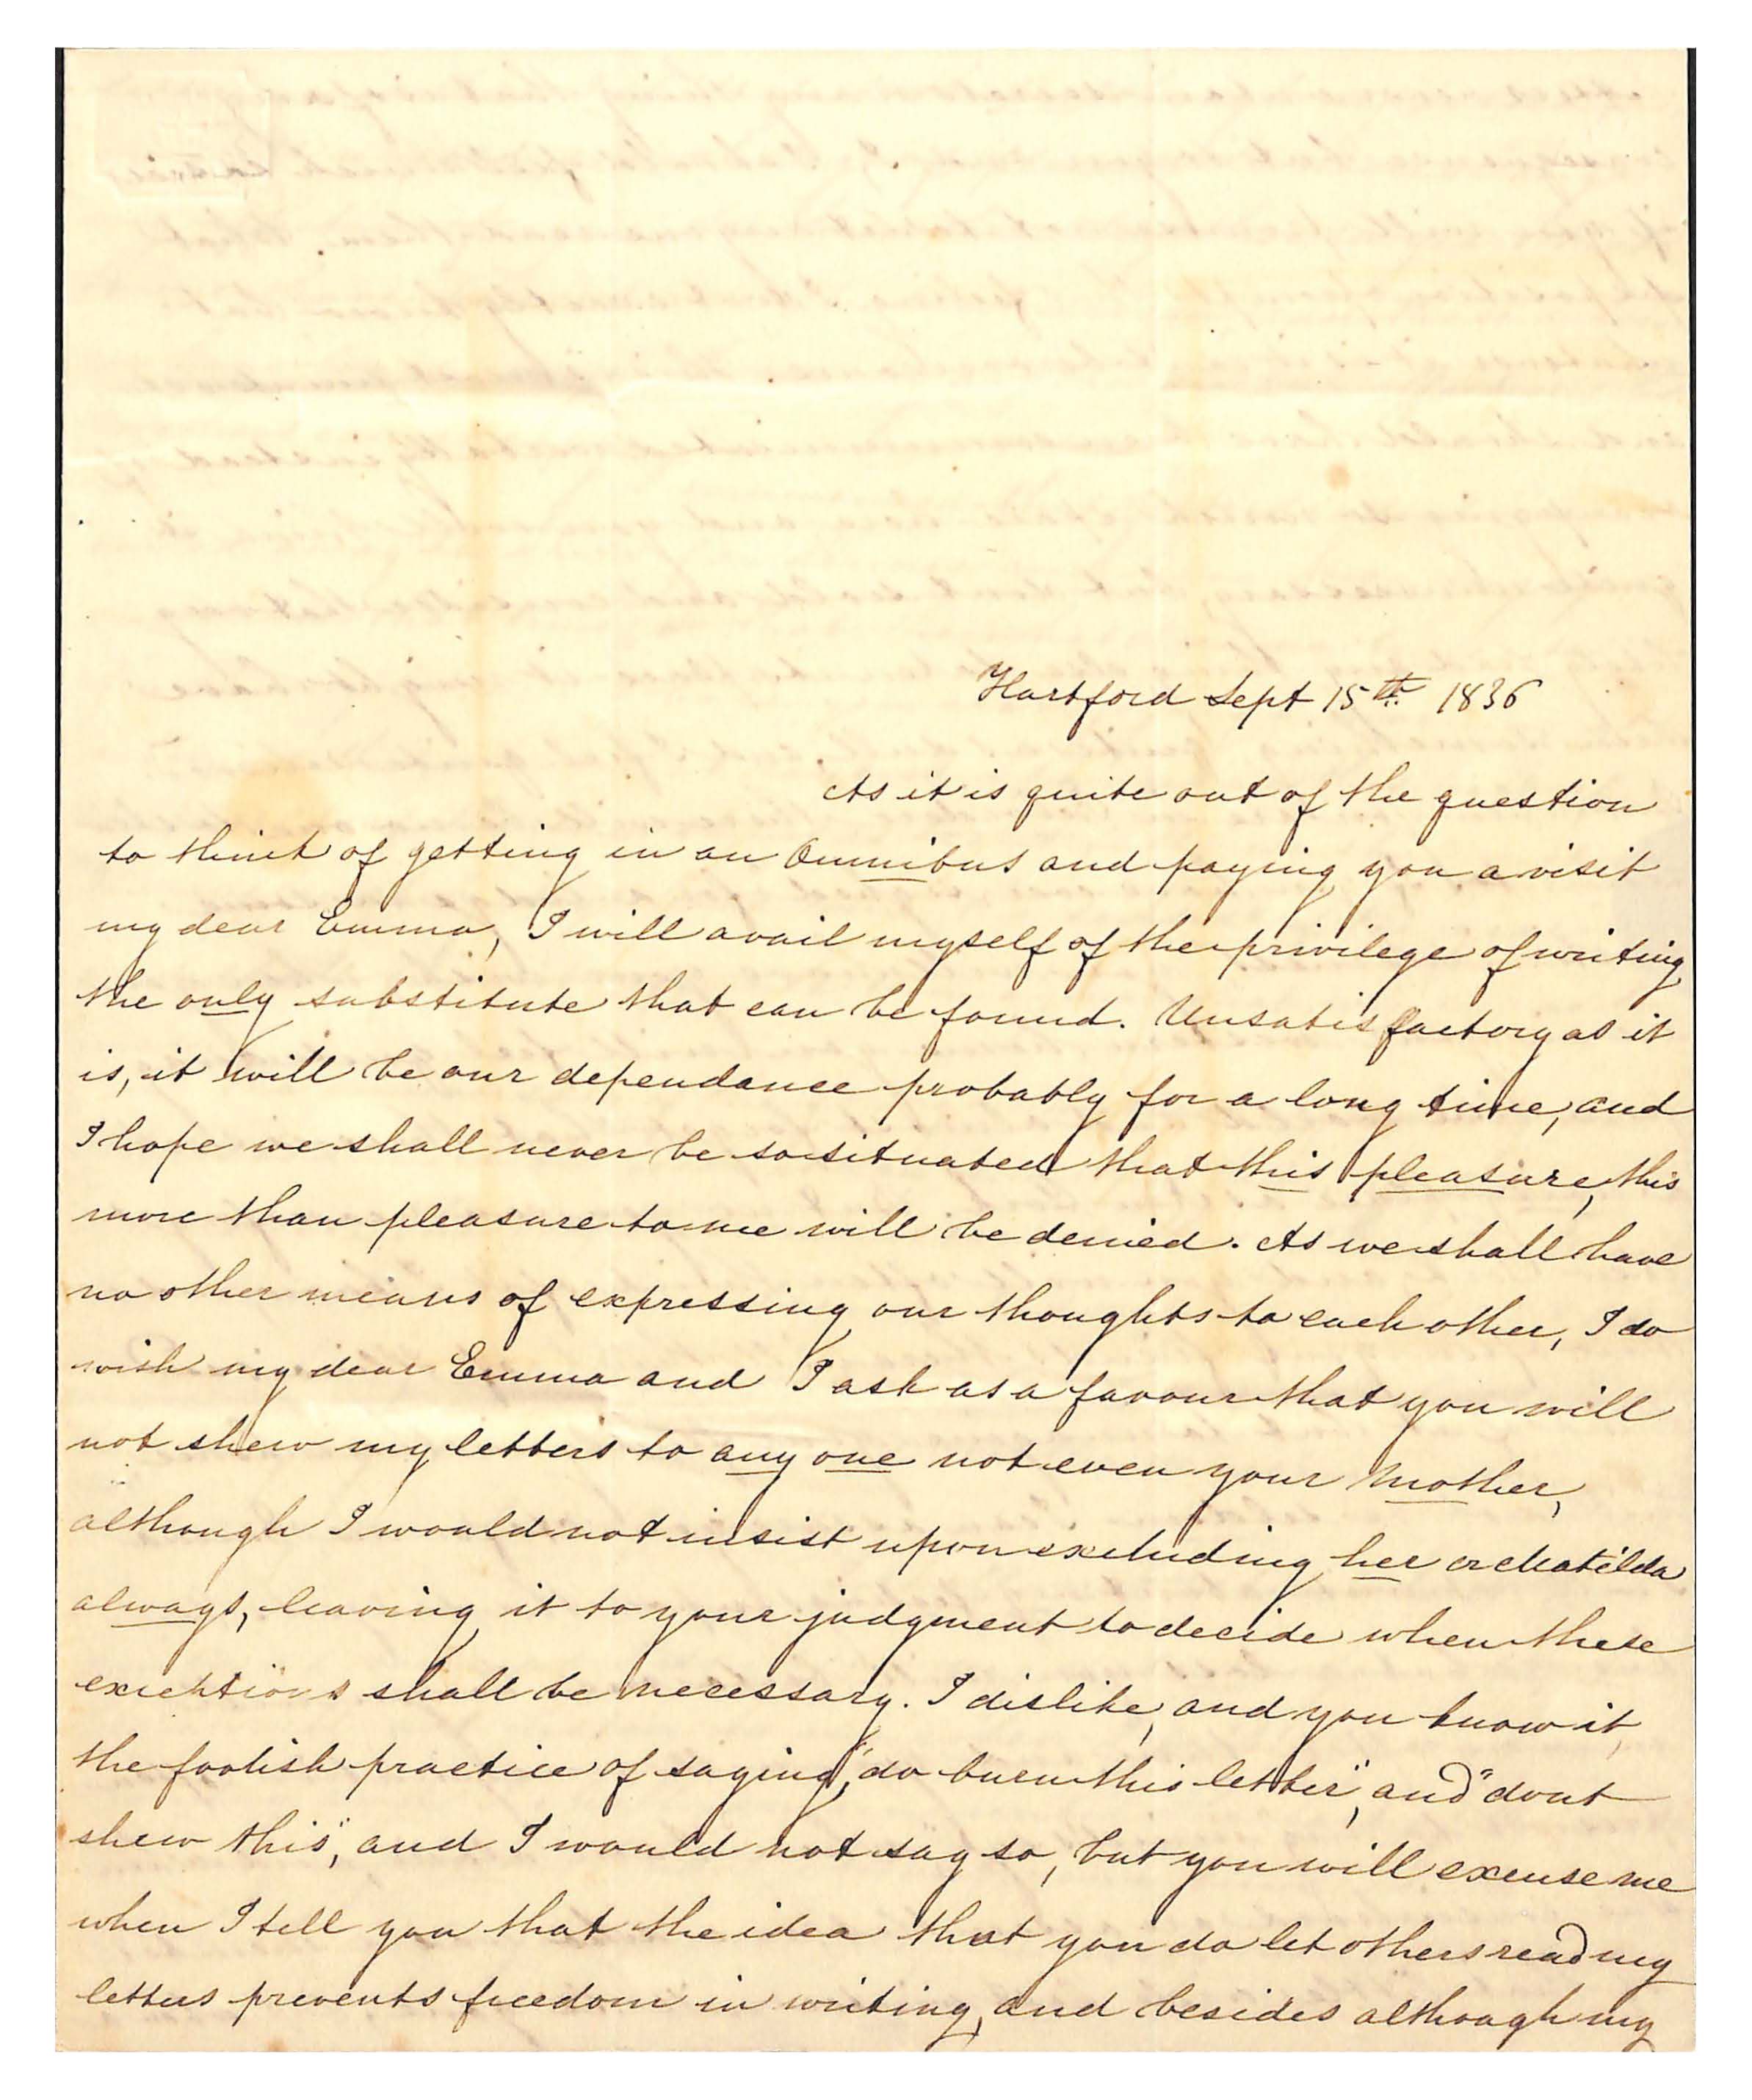 Hartford Sept 15th. 1836
As it is quite out of the question
to think of getting in an Omnibus and paying you a visit
my dear Emma, I will avail myself of the privilege of writing,
the only substitute that can be found. Unsatisfactory as it
is, it will be our dependance probably for a long time, and
I hope we shall never be so situated that this pleasure, this
more than pleasure to me will be denied. As we shall have
no other means of expressing our thoughts to each other, I do
wish my dear Emma and I ask as a favour that you will
not shew my letters to any one not even your Mother,
although I would not insist upon excluding her or Matilda
always, leaving it to your judgment to decide when these
exceptions shall be necessary. I dislike, and you know it,
the foolish practice of saying, "do burn this letter", and "dont
shew this", and I would not say so, but you will excuse me
when I tell you that the idea that you do let others read my
letters prevents freedom in writing, and besides although my